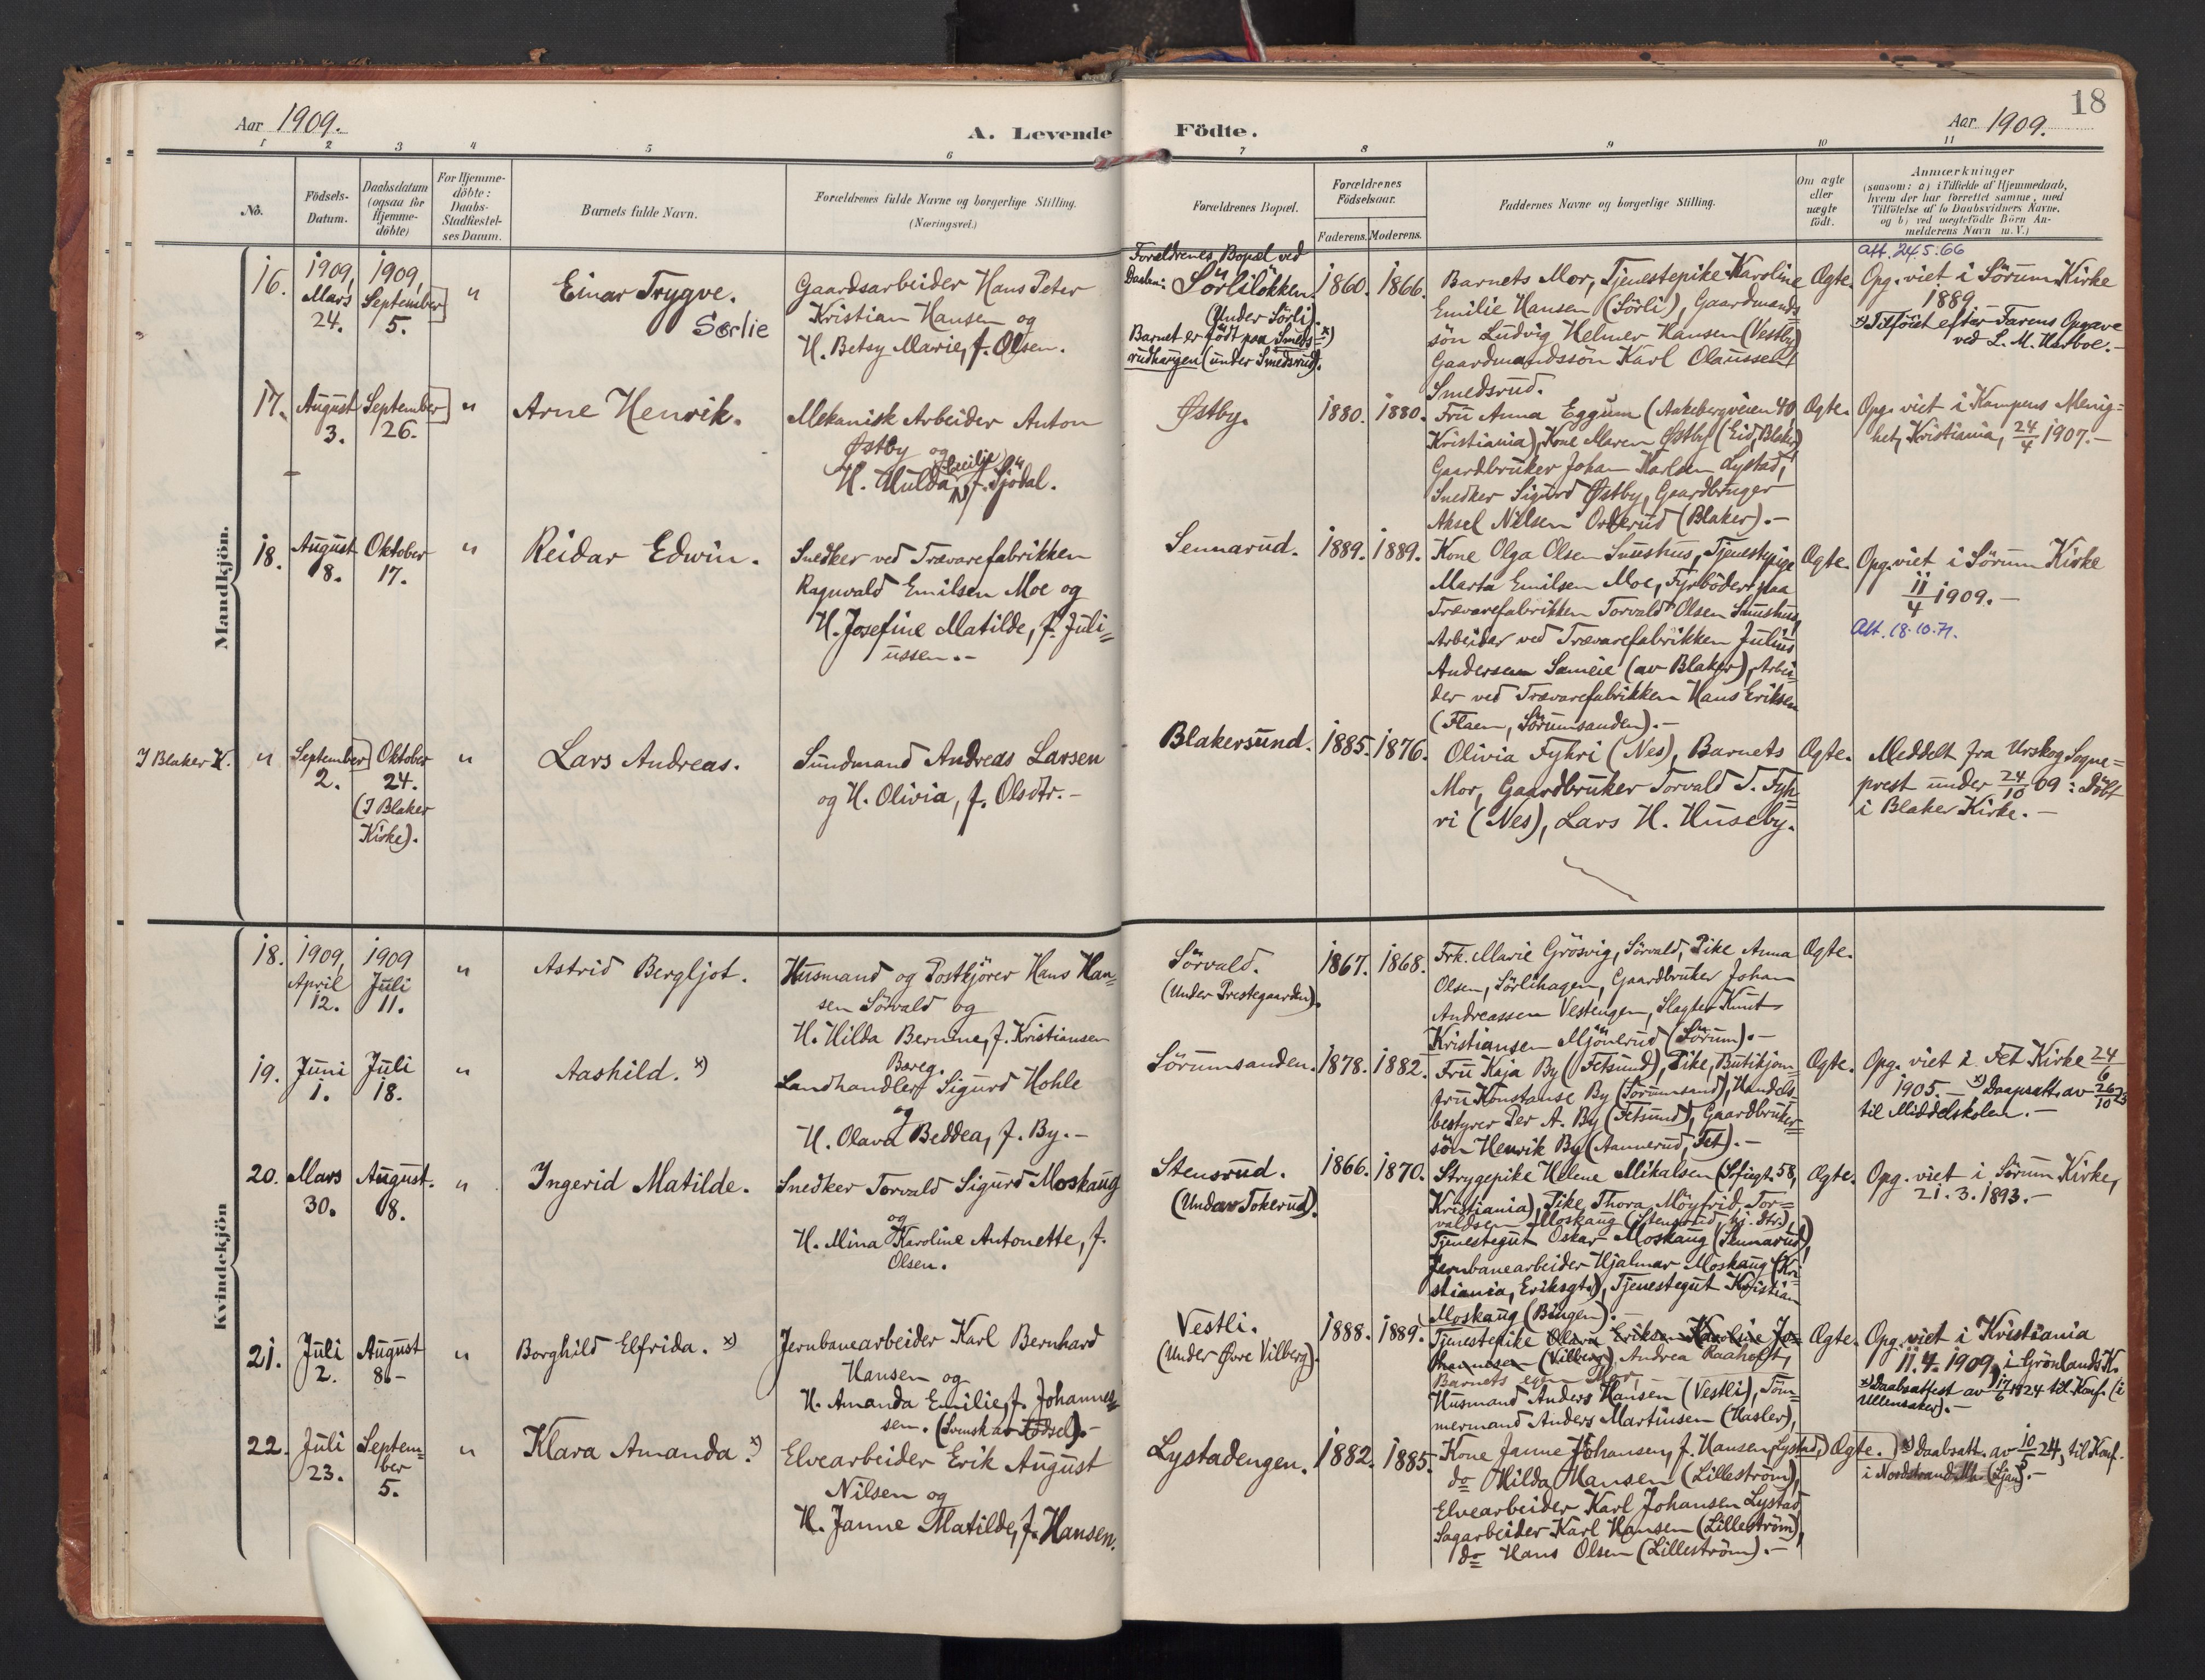 18
Aar 1909.
A. Levende Födte.
Aar 1909.
1 2 3 4 5 6 7 8 9 10 11
No.
Födsels-
Datum.
Daabsdatum
(ogsaa for
Hjemme-
döbte)
For Hjemme-
döbte:
Daabs-
Stadfæstel-
ses Datum.
Barnets fulde Navn.
Forældrenes fulde Navne og borgerlige Stilling.
(Næringsvei.)
Forældrenes Bopæl.
Forældrenes
Födselsaar.
Faderens. Moderens.
Faddernes Navne og borgerlige Stilling.
Om ægte
eller
uægte
født.
Anmærkninger
(saasom: a) i Tilfælde af Hjemmedaab,
hvem der har forrettet samme, med
Tilföielse af to Daabsvidners Navne,
og b) ved uægtefödte Börn An-
melderens Navn m.V.)
Mandkjön.
16.
1909,
Mars
24.
1909,
September
5.
"
Einar Trygve.
Sørlie
Gaardsarbeider Hans Peter
Kristian Hansen og
H. Betsy Marie, f. Olsen.
Forældrenes Bopæl ved
Daaben: Sörlilökken
(Under Sörli).
Barnet er födt paa Smeds= x)
rudhaugen (under Smedsrud).
1860. 1866.
Barnets Mor, Tjenestepike Karoline
Emilie Hansen (Sörli), Gaardmands=
sön Ludvig Helmer Hansen (Vestby)
Gaardmandssön Karl Olaussen
Smedsrud.
Ægte.
Att. 24.5.66
Opg. viet i Sörum Kirke
1889.-
x) Tilföiet efter Farens Opgave
ved L. M. Harboe.-
17.
August
3.
September
26.
"
Arne Henrik.
Mekanisk Arbeider Anton
Østby og
H. Hulda Cecilie N, f. Sjödal.
Østby.
1880. 1880.
Fru Anna Eggum (Aakebergveien 40,
Kristiania), Kone Maren Østby (Eid, Blaker)
Gaardbruker Johan Karlsen Lystad,
Snedker Sigurd Østby, Gaardbruger
Aksel Nilsen Orderud (Blaker).-
Ægte.
Opg. viet i Kampens Menig=
het, Kristiania, 24/4 1907.-
18.
August
8.
Oktober
17.
"
Reidar Edwin.
Snedker ved Trævarefabrikken
Ragnvald Emilsen Moe og
H. Josefine Matilde, f. Juli=
ussen.-
Sennarud.
1889. 1889.
Kone Olga Olsen Snushus, Tjenestepige
Marta Emilsen Moe, Fyrböder paa
Trævarefabrikken Torvald Olsen Snushus,
Arbeider ved Trævarefabrikken Julius
Andersen Sameie (av Blaker), Arbei=
der ved Trævarefabrikken Hans Eriksen
(Flaen, Sörumsanden).-
Ægte.
Opg. viet i Sörum Kirke
11/4 1909.-
Att. 18.10.71.
I Blaker K.
"
September
2.
Oktober
24.
(I Blaker
Kirke).
"
Lars Andreas.
Sundmand Andreas Larsen
og H. Olivia, f. Olsdtr.-
Blakersund.
1885. 1876.
Olivia Fyhri (Nes), Barnets
Mor, Gaardbruker Torvald T. Fyh=
ri (Nes), Lars H. Huseby.
Ægte.
Meddelt fra Urskog Sogne=
prest under 24/10 09: Döbt
i Blaker Kirke.-
Kvindekjön
18.
1909,
April
12.
1909
Juli
11.
"
Astrid Bergljot.
Husmand og Postkjörer Hans Han=
sen Sörvald og
H. Hilda Bernine, f. Kristiansen
Sörvald.
(Under Prestegaarden).
1867. 1868.
Frk. Marie Grösvig, Sörvald, Pike Anna
Olsen, Sörlihagen, Gaardbruker Johan
Andreassen Vestengen, Slagter Knut
Kristiansen Mjönerud (Sörum).-
Ægte.
19.
Juni
1.
Juli
18.
"
Aashild. x)
Boreg.
Landhandler Sigurd Hohle
og
H. Olava Beddea, f. By.-
Sörumsanden.
1878. 1882.
Fru Kaja By (Fetsund), Pike, Butikjom=
fru Konstanse By (Sörumsand), Handels=
bestyrer Per A. By (Fetsund), Gaardbruker=
sön Henrik By (Aannerud, Fet).-
Ægte.
Opg. viet i Fet Kirke 24/6
1905.- x) Daapsatt. av 26/10 23
til Middelskolen.-
20.
Mars
30.
August.
8.
"
Ingerid Matilde.
Snedker Torvald Sigurd Moskaug
og
H. Mina Karoline Antonette, f.
Olsen.
Stensrud.
(Under Tokerud).
1866. 1870.
Strygepike Helene Mikalsen (Sofiegt. 58,
Kristiania), Pike Thora Möyfrid Tor=
valdsen Moskaug (Stensrud, hj. dtr.),
Tjenestegut Oskar Moskaug (Sennarud),
Jernbanearbeider Hjalmar Moskaug (Kri=
stiania, Eriksgt.), Tjenestegut Kristian
Moskaug (Bingen).-
Ægte.
Opg. viet i Sörum Kirke,
21.3.1893.-
21.
Juli
2.
August
8.-
"
Borghild Elfrida. x)
Jernbanearbeider Karl Bernhard
Hansen og
H. Amanda Emilie, f. Johannes=
sen. (Svensk av Födsel).-
Vestli.
(Under Øvre Vilberg).
1888. 1889.
Tjenestepike Olava Eriksen Karoline Jo=
hannesen (Vilberg), Andrea Raaholt,
Barnets egen Mor,
Husmand Anders Hansen (Vestli), Töm=
mermand Anders Martinsen (Hasler),
Ægte.
Opg. viet i Kristiania
11.4.1909, i Grönlands K.
x) Daabsattest av 17/6 1924 til Konf. (i
Ullensaker).-
22.
Juli
23.
Septem=
ber
5.
"
Klara Amanda. x)
Elvearbeider Erik August
Nilsen og
H. Janne Matilde, f. Hansen.
Lystadengen.
1882. 1885.
Kone Janne Johansen, f. Hansen, Lystad,
do Hilda Hansen (Lilleström),
Elvearbeider Karl Johansen Lystad
Sagarbeider Karl Hansen (Lilleström),
do Hans Olsen (Lilleström).-
Ægte.
x) Daabsatt. av 10/5 24, til Konf.
i Nordstrand Mh. (Ljan).-